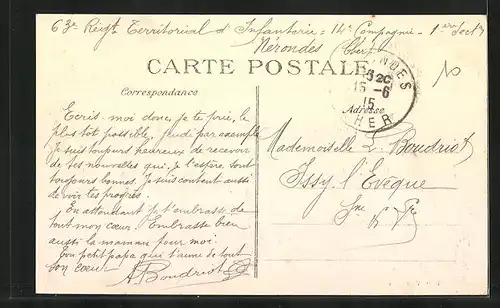 63e Régt Territorial d'Infanterie = 14e Compagnie - 1ere Sect
Nérondes (Cher)
CARTE POSTALE
Correspondance
Adresse
15-6
15
CHER
10
Ecris moi donc, je te prie, le
plus tôt possible, jeudi par exemple
Je suis toujours heureux de recevoir
de tes nouvelles qui, je l'espère sont
toujours bonnes. Je suis content aussi
de voir tes progrès.
En attendant je t'embrasse de
tout mon cœur. Embrasse bien
aussi la maman pour moi.
Ton petit papa qui t'aime de tout
son cœur
A. Boudriot
Mademoiselle L. Boudriot
Issy l'Evêque